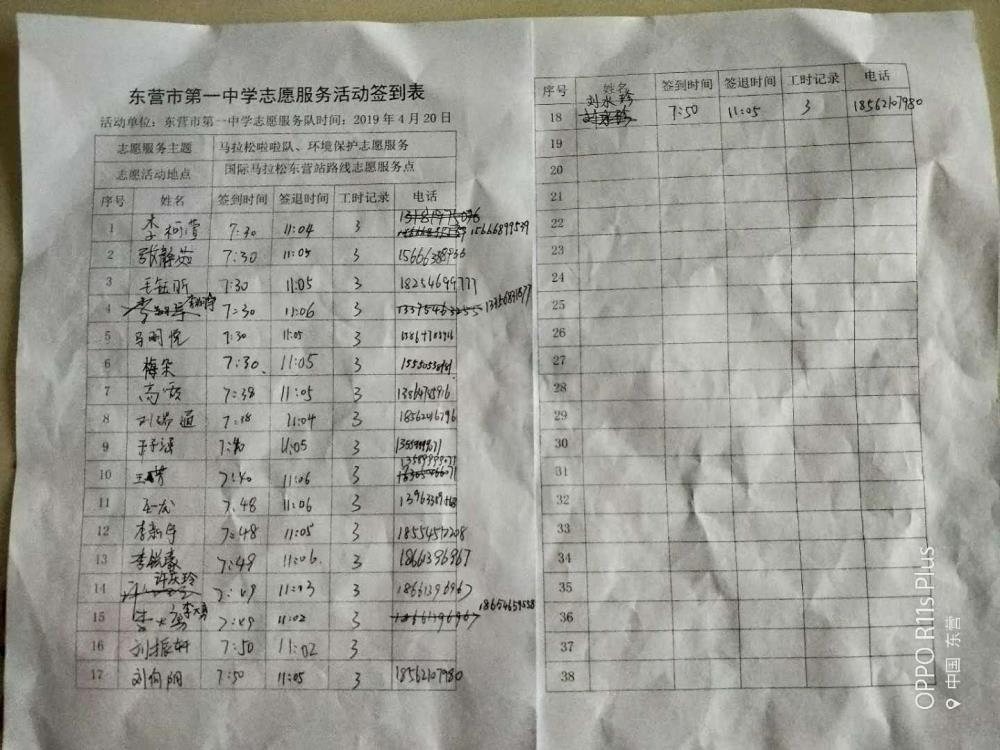 东营市第一中学志愿服务活动签到表
活动单位：东营市第一中学志愿服务队时间：2019 年 4 月 20 日
志愿服务主题 马拉松啦啦队、环境保护志愿服务
志愿活动地点 国际马拉松东营站路线志愿服务点
序号 姓名 签到时间 签退时间 工时记录 电话
1 李柯萱 7:30 11:04 3 15666899539
2 张静茹 7:30 11:05 3
3 毛钰昕 7:30 11:05 3 18254699777
4 7:30 11:06 3
5 马明悦 7:30 11:05 3
6 梅朵 7:30 11:05 3
7 高 7:38 11:05 3
8 7:38 11:04 3
9 7:40 11:05 3
10 7:40 11:06 3
11 7.48 11:06 3
12 7:48 11:05 3 18554572208
13 7:49 11:06 3 18661396967
14 许庆玲 7:49 11:03 3 18661396967
15 李大勇 7:49 11:02 3 18654659558
16 刘振轩 7:50 11:02 3
17 刘向阳 7:50 11:05 3 18562107980
序号 姓名 签到时间 签退时间 工时记录 电话
18 刘水珍 7:50 11:05 3 18562107980
19
20
21
22
23
24
25
26
27
28
29
30
31
32
33
34
35
36
37
38
OPPO R11s Plus
中国 东营